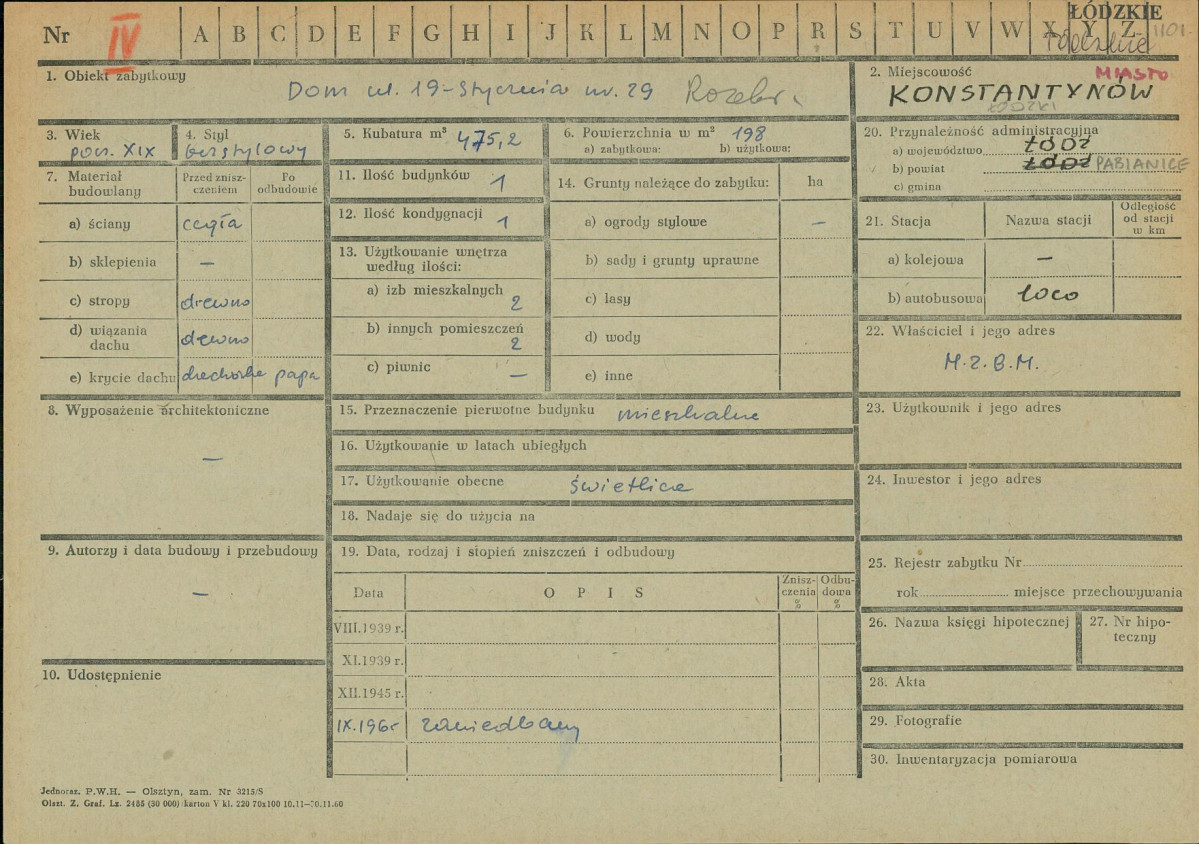 ŁÓDZKIE
Nr IV A B C D E F G H I J K L M N O P R S T U V W X Y Z 1101
1. Obiekt zabytkowy
Dom ul. 19-Stycznia nr. 29
2. Miejscowość MIASTO
KONSTANTYNÓW
ŁÓDZKI
3. Wiek
pocz. XIX
4. Styl
bezstylowy
5. Kubatura m³ 475,2
6. Powierzchnia w m² 198
a) zabytkowa: b) użytkowa:
20. Przynależność administracyjna
a) województwo ŁÓDŹ
b) powiat ŁÓDŹ PABIANICE
c) gmina
7. Materiał budowlany
Przed zniszczeniem
Po odbudowie
a) ściany cegła
b) sklepienia —
c) stropy drewno
d) wiązania dachu drewno
e) krycie dachu papa
11. Ilość budynków 1
12. Ilość kondygnacji 1
13. Użytkowanie wnętrza według ilości:
a) izb mieszkalnych 2
b) innych pomieszczeń 2
c) piwnic —
14. Grunty należące do zabytku: ha
a) ogrody stylowe —
b) sady i grunty uprawne
c) lasy
d) wody
e) inne
21. Stacja Nazwa stacji Odległość od stacji w km
a) kolejowa —
b) autobusowa loco
22. Właściciel i jego adres
M.Z.B.M.
8. Wyposażenie architektoniczne
—
15. Przeznaczenie pierwotne budynku mieszkalne
16. Użytkowanie w latach ubiegłych
17. Użytkowanie obecne świetlica
18. Nadaje się do użycia na
23. Użytkownik i jego adres
24. Inwestor i jego adres
9. Autorzy i data budowy i przebudowy
—
19. Data, rodzaj i stopień zniszczeń i odbudowy
Data OPIS Zniszczenia % Odbudowa %
VIII.1939 r.
XI.1939 r.
XII.1945 r.
IX.196r zaniedbany
25. Rejestr zabytku Nr
rok miejsce przechowywania
26. Nazwa księgi hipotecznej
27. Nr hipoteczny
10. Udostępnienie
28. Akta
29. Fotografie
30. Inwentaryzacja pomiarowa
Jednoraz. P.W.H. — Olsztyn, zam. Nr 3215/S
Olszt. Z. Graf. Lz. 2485 (30 000) karton V kl. 220 70x100 10.11—30.11.60